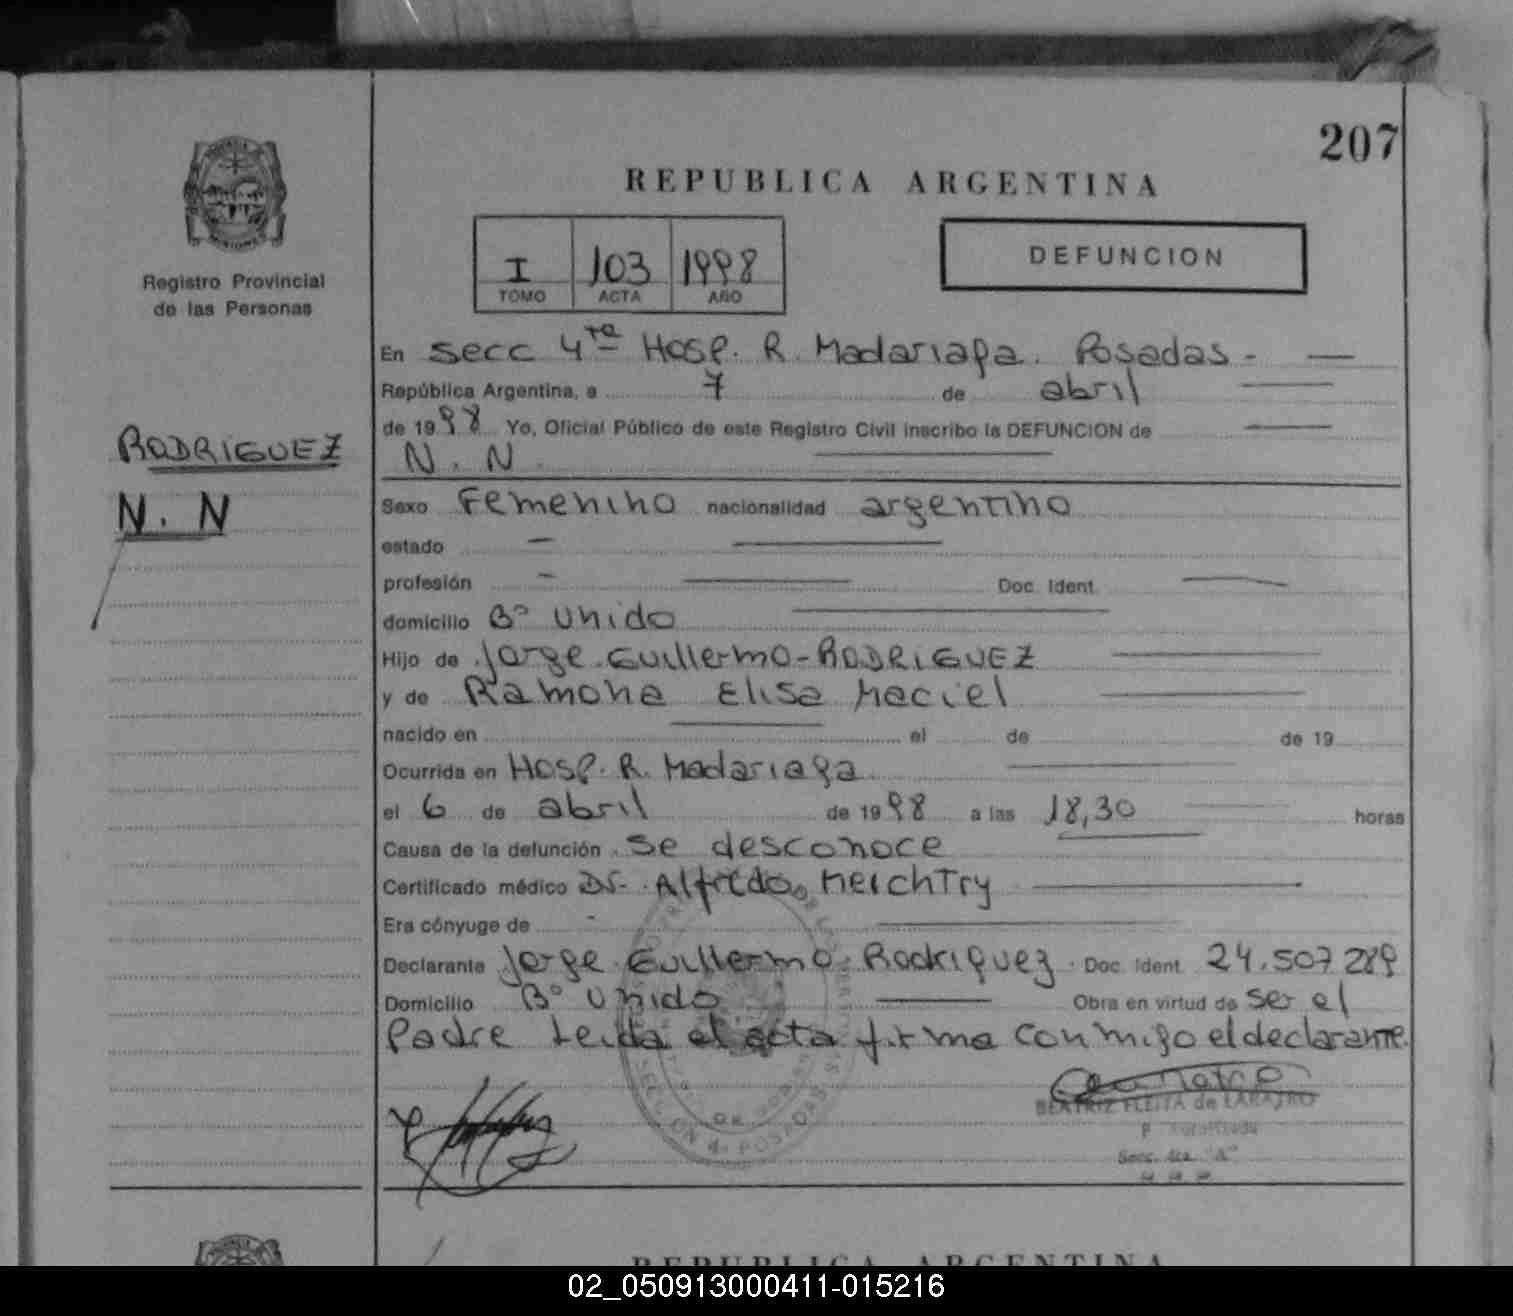 207
REPUBLICA ARGENTINA
I 103 1998
TOMO ACTA AÑO
DEFUNCION
Registro Provincial
de las Personas
RODRIGUEZ
N. N
En Secc 4ta Hosp. R. Madariaga. Posadas -
República Argentina, a 7 de abril
de 1998 Yo, Oficial Público de este Registro Civil inscribo la DEFUNCION de
N. N
Sexo Femenino nacionalidad argentino
estado —
profesión — Doc. Ident.
domicilio Bº Unido
Hijo de Jorge Guillermo - RODRIGUEZ
y de Ramona Elisa Maciel
nacido en el de de 19
Ocurrida en Hosp. R. Madariaga
el 6 de abril de 1998 a las 18,30 horas
Causa de la defunción se desconoce
Certificado médico Dr. Alfredo Meichtry
Era cónyuge de -
Declarante Jorge Guillermo Rodriguez. Doc. Ident. 24.507 289
Domicilio Bº Unido Obra en virtud de ser el
Padre Leida el acta firma conmigo el declarante.
BEATRIZ FLEITA de
Secc. 4ta. "A"
SECCION 4ª POSADAS
REPUBLICA ARGENTINA
02_050913000411-015216